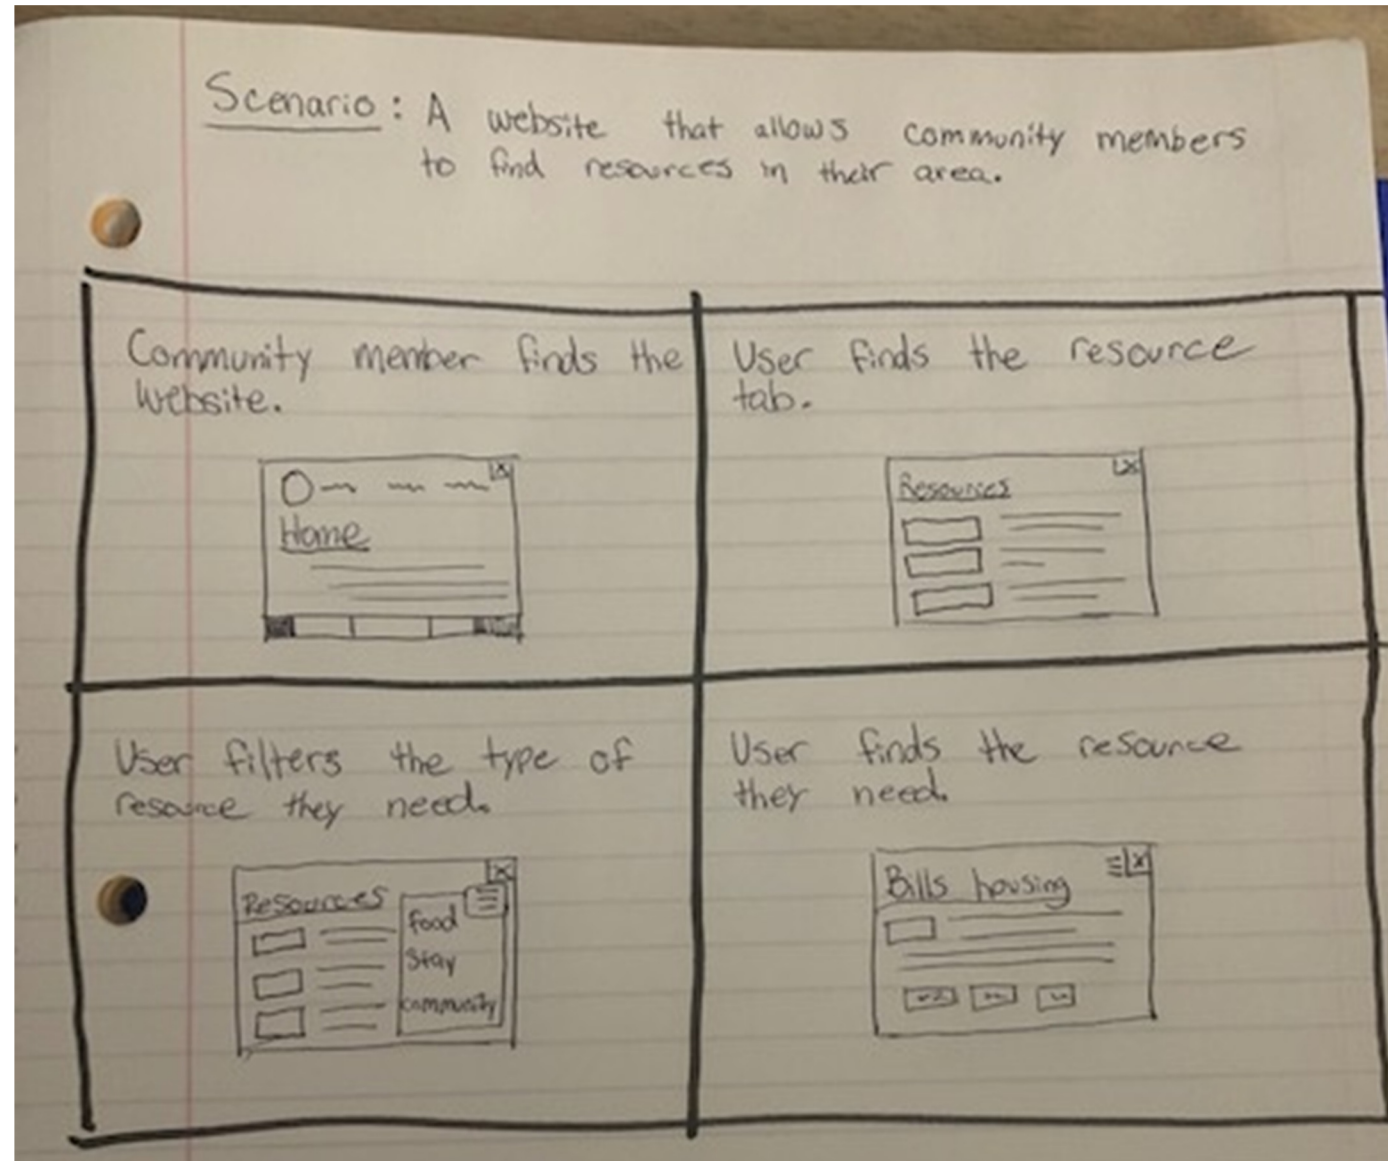 Scenario: A website that allows community members
to find resources in their area.
Community member finds the
website.
Home
User finds the resource
tab.
Resources
User filters the type of
resource they need.
Resources
Food
Stay
community
User finds the resource
they need.
Bills housing